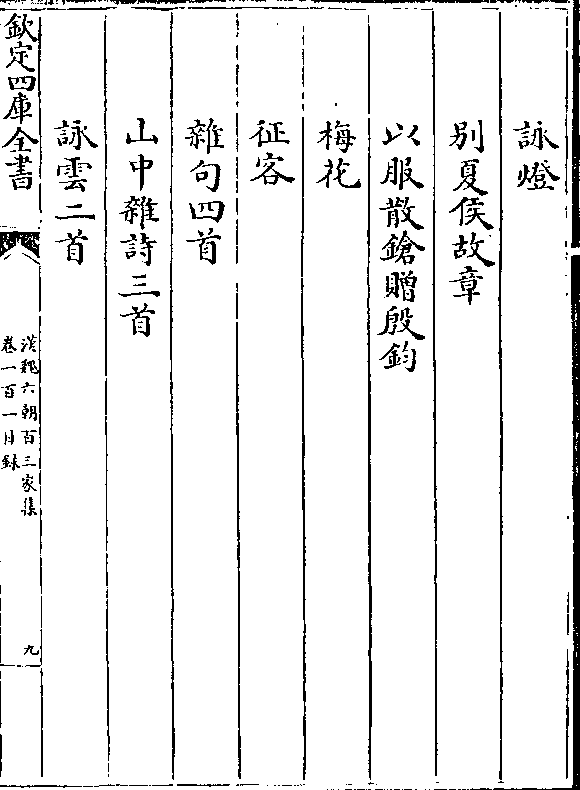 詠燈
别夏侯故章
以服散鎗贈殷鈞
梅花
征客
雜句四首
山中雜詩三首
詠雲二首
欽定四庫全書
漢魏六朝百三家集
卷一百一目録
九